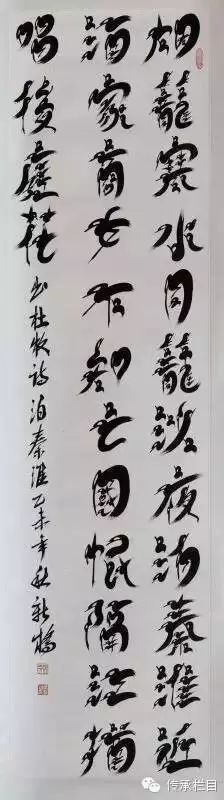 烟籠寒水月籠沙夜泊秦淮近
酒家商女不知亡國恨隔江猶
唱後庭花
书杜牧诗泊秦淮乙未年秋
传承栏目